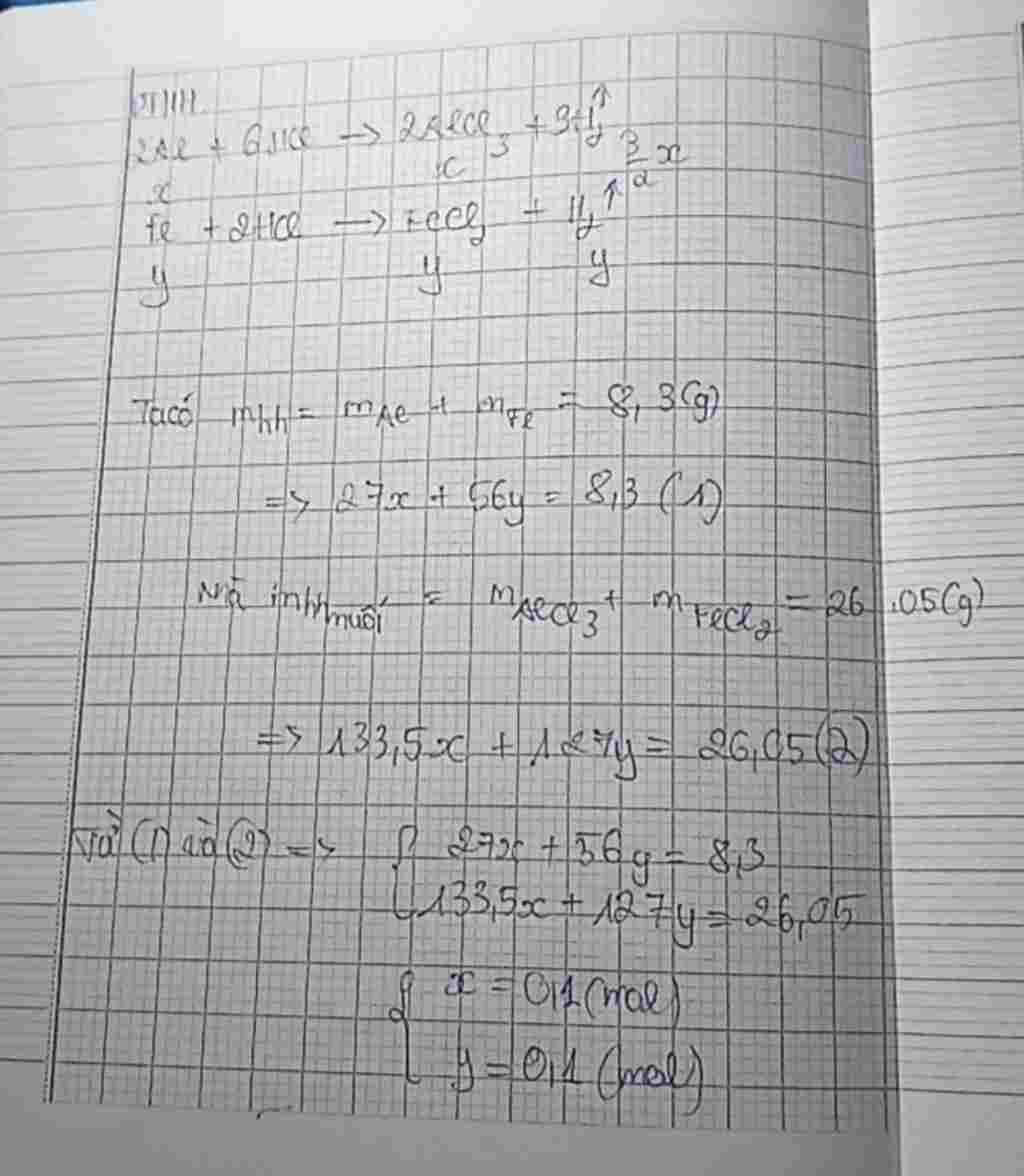 PTHH
2Al + 6HCl → 2AlCl3 + 3H2↑
x x 3/2 x
Fe + 2HCl → FeCl2 + H2↑
y y y
Ta có mhh = mAl + mFe = 8,3(g)
=> 27x + 56y = 8,3 (1)
Mà mhh muối = mAlCl3 + mFeCl2 = 26,05(g)
=> 133,5x + 127y = 26,05 (2)
Từ (1) và (2) => { 27x + 56y = 8,3
133,5x + 127y = 26,05
{ x = 0,1 (mol)
y = 0,1 (mol)